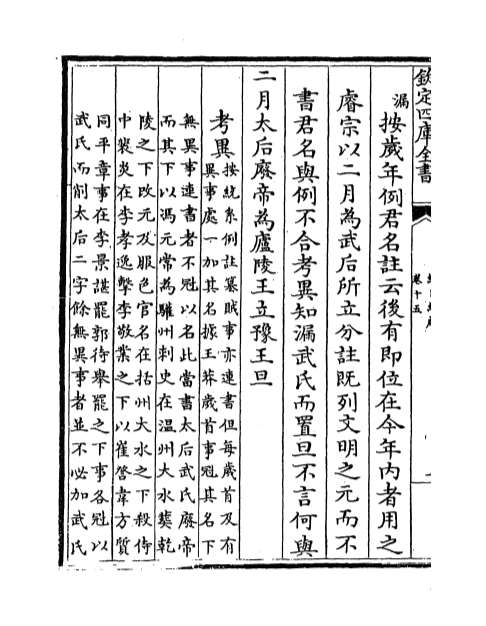 欽定四庫全書
卷十五
漏
按歲年例君名註云後有即位在今年内者用之
睿宗以二月為武后所立分註既列文明之元而不
書君名與例不合考異知漏武氏而置旦不言何與
二月太后廢帝為廬陵王立豫王旦
考異
按統系例註篡賊事亦連書但每歲首及有
異事處一加其名據王莽歲首事冠其名下
無異事連書者不冠以名此當書太后武氏廢帝
而其下以馮元常為隴州刺史在温州大水葬乾
陵之下改元及服色官名在括州大水之下殺侍
中裴炎在李孝逸擊李敬業之下以崔詧韋方質
同平章事在李景諶罷郭待舉罷之下事各冠以
武氏而削太后二字餘無異事者並不必加武氏